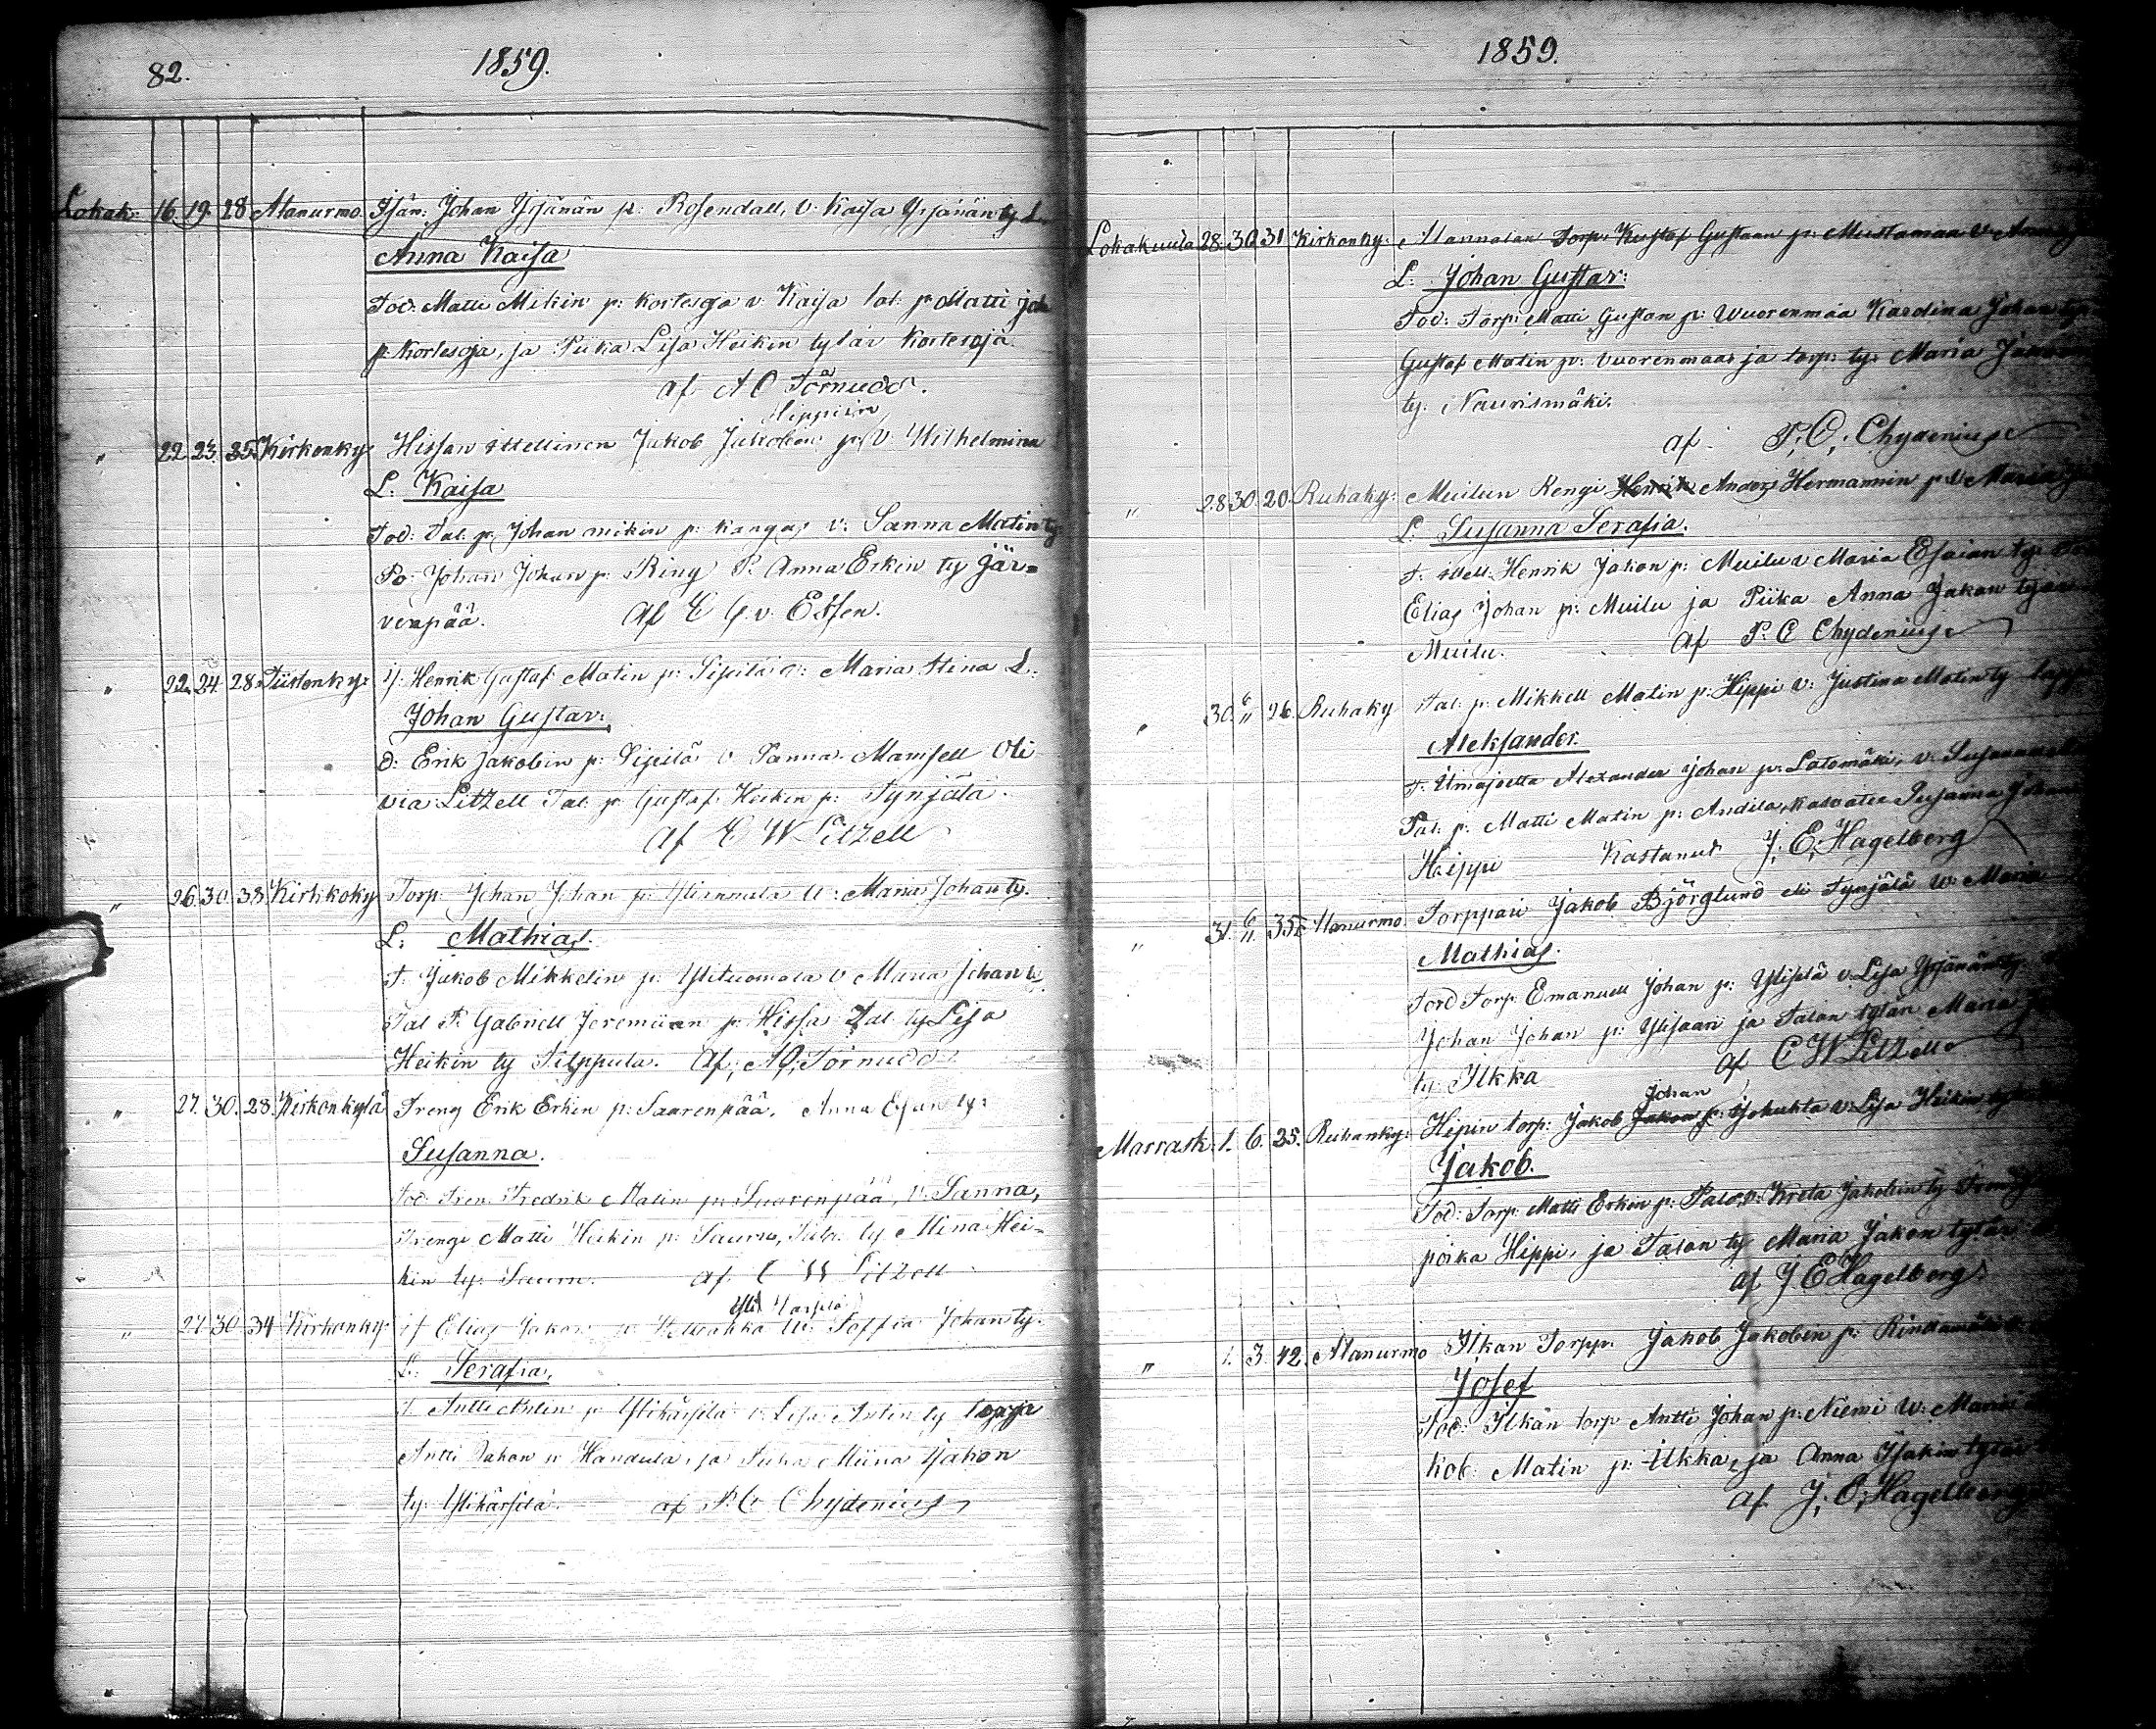 82.
1859.
Lokak: 16. 19. 28 Alanurmo. Isän: Johan Yrjänän p: Rosendall, v: Kaisa Yrjänän ty L.
Anna Kaisa
Tod: Matti Mikin p: Kortesoja v: Kaisa tal: p: Matti Joh
p: Kortesoja, ja Piika Lisa Heikin tytär Kortesoja.
af A O Törnudd.
Hippiin
" 22. 23. 25. Kirkonky. Hissan Jakob Jakobin p: v: Wilhelmina
L: Kaisa
Tod: Tal: p: Johan mikin p: Kangas v: Sanna Matin ty
Po: Johan Johan p: Ring P. Anna Erkin ty Jär=
venpää. af E G. v. Essen.
" 22. 24. 28. Tiistenky: if: Henrik Gustaf Matin p: Sipilä v: Maria Stina L.
Johan Gustav:
d: Erik Jakobin p: Sipilä v Sanna. Mamsell Oli
via Litzell Tal: p: Gustaf Heikin p: Tynjälä.
af E W Litzell
" 26. 30. 38. Kirkkoky Torp Johan Johan p: v: Maria Johan ty.
L: Mathias.
T. Jakob Mikkelin p: Ylituomala v Maria Johan ty.
Tal P. Gabriell Jeremiian p: Hissa Tal. ty Lisa
Heikin ty Filppula. af, A O, Törnudd
" 27. 30. 28. Kirkonkylä Treng Erik Erkin p: Saarenpää. Anna Esan ty:
Susanna.
Tod Tren: Fredrik Matin p: Saarenpää, v: Sanna,
Trengi Matti Heikin p: Sauru, Talo: ty Miina Hei=
kin ty: Sauru. af. E W Litzell
Yli Harsila
" 27. 30. 34 Kirkonky: if Elias Jakon p: v: Soffia Johan ty.
L: Serafia.
T. Antti Antin p Ylihärsilä v: Lisa Antin ty
Antti Jakon p: Handula, ja Piika Miina Jakon
ty: Ylihärsilä. af P. C Chydenius
1859.
Lokakuula 28. 30. 31 Kirkonky: Hannolan Torp: Kustaf Gustaan p: Mustamaa v: Anna
L: Johan Gustav:
Tod: Torp: Matti Gustan p: Wuorenmaa Karolina Johan ty
Gustaf Matin p: Vuorenmaa ja torp: ty: Maria Jakon
ty: Naurismäki.
af P. C. Chydenius
" 28 30. 20. Ruhaky: Muilun Rengi Henrik Anders Hermannin p: v: Maria
L: Susanna Serafia.
T. Henrik Jakon p: Muilu v Maria Esaian ty:
Elias Johan p: Muilu ja Piika Anna Jakon tytär
Muilu. af P. C Chydenius
" 30. 6/11 26. Ruhaky Tal: p: Mikkell Matin p: Hippi v: Justina Matin ty
Aleksander.
T. Alexander Johan p: Latomäki, v: Susanna
Tal: p: Matti Matin p: Andila, Susanna Johan
Hippi Kastanut J. E; Hagelberg
" 31. 6/11. 35. Alanurmo. Torppari Jakob Björglund eli Tynjälä v: Maria
Mathias.
Tod Torp: Emanuell Johan p: Ylisilä v: Lisa Yrjänän ty
Johan Johan p: Ylisaari ja Talon tytär Maria
ty: Ilkka af C W Litzell
Johan
Marrask: 1. 6. 25. Ruhanky: Hipin torp: Jakob Jakon p: v: Lisa Heikin ty
Jakob.
Tod: Torp: Matti Erkin p: Palo, v: Kreta Jakobin ty
poika Hippi, ja Talon ty Maria Jakon tytär
af J E Hagelberg.
" 1. 3. 42. Alanurmo Ilkan Torpp. Jakob Jakobin p:
Josef
Tod: Ilkan torp Antti Johan p: Niemi v: Maria
kob Matin p: Ilkka, ja Anna Isakin tytär
af J. E, Hagelberg